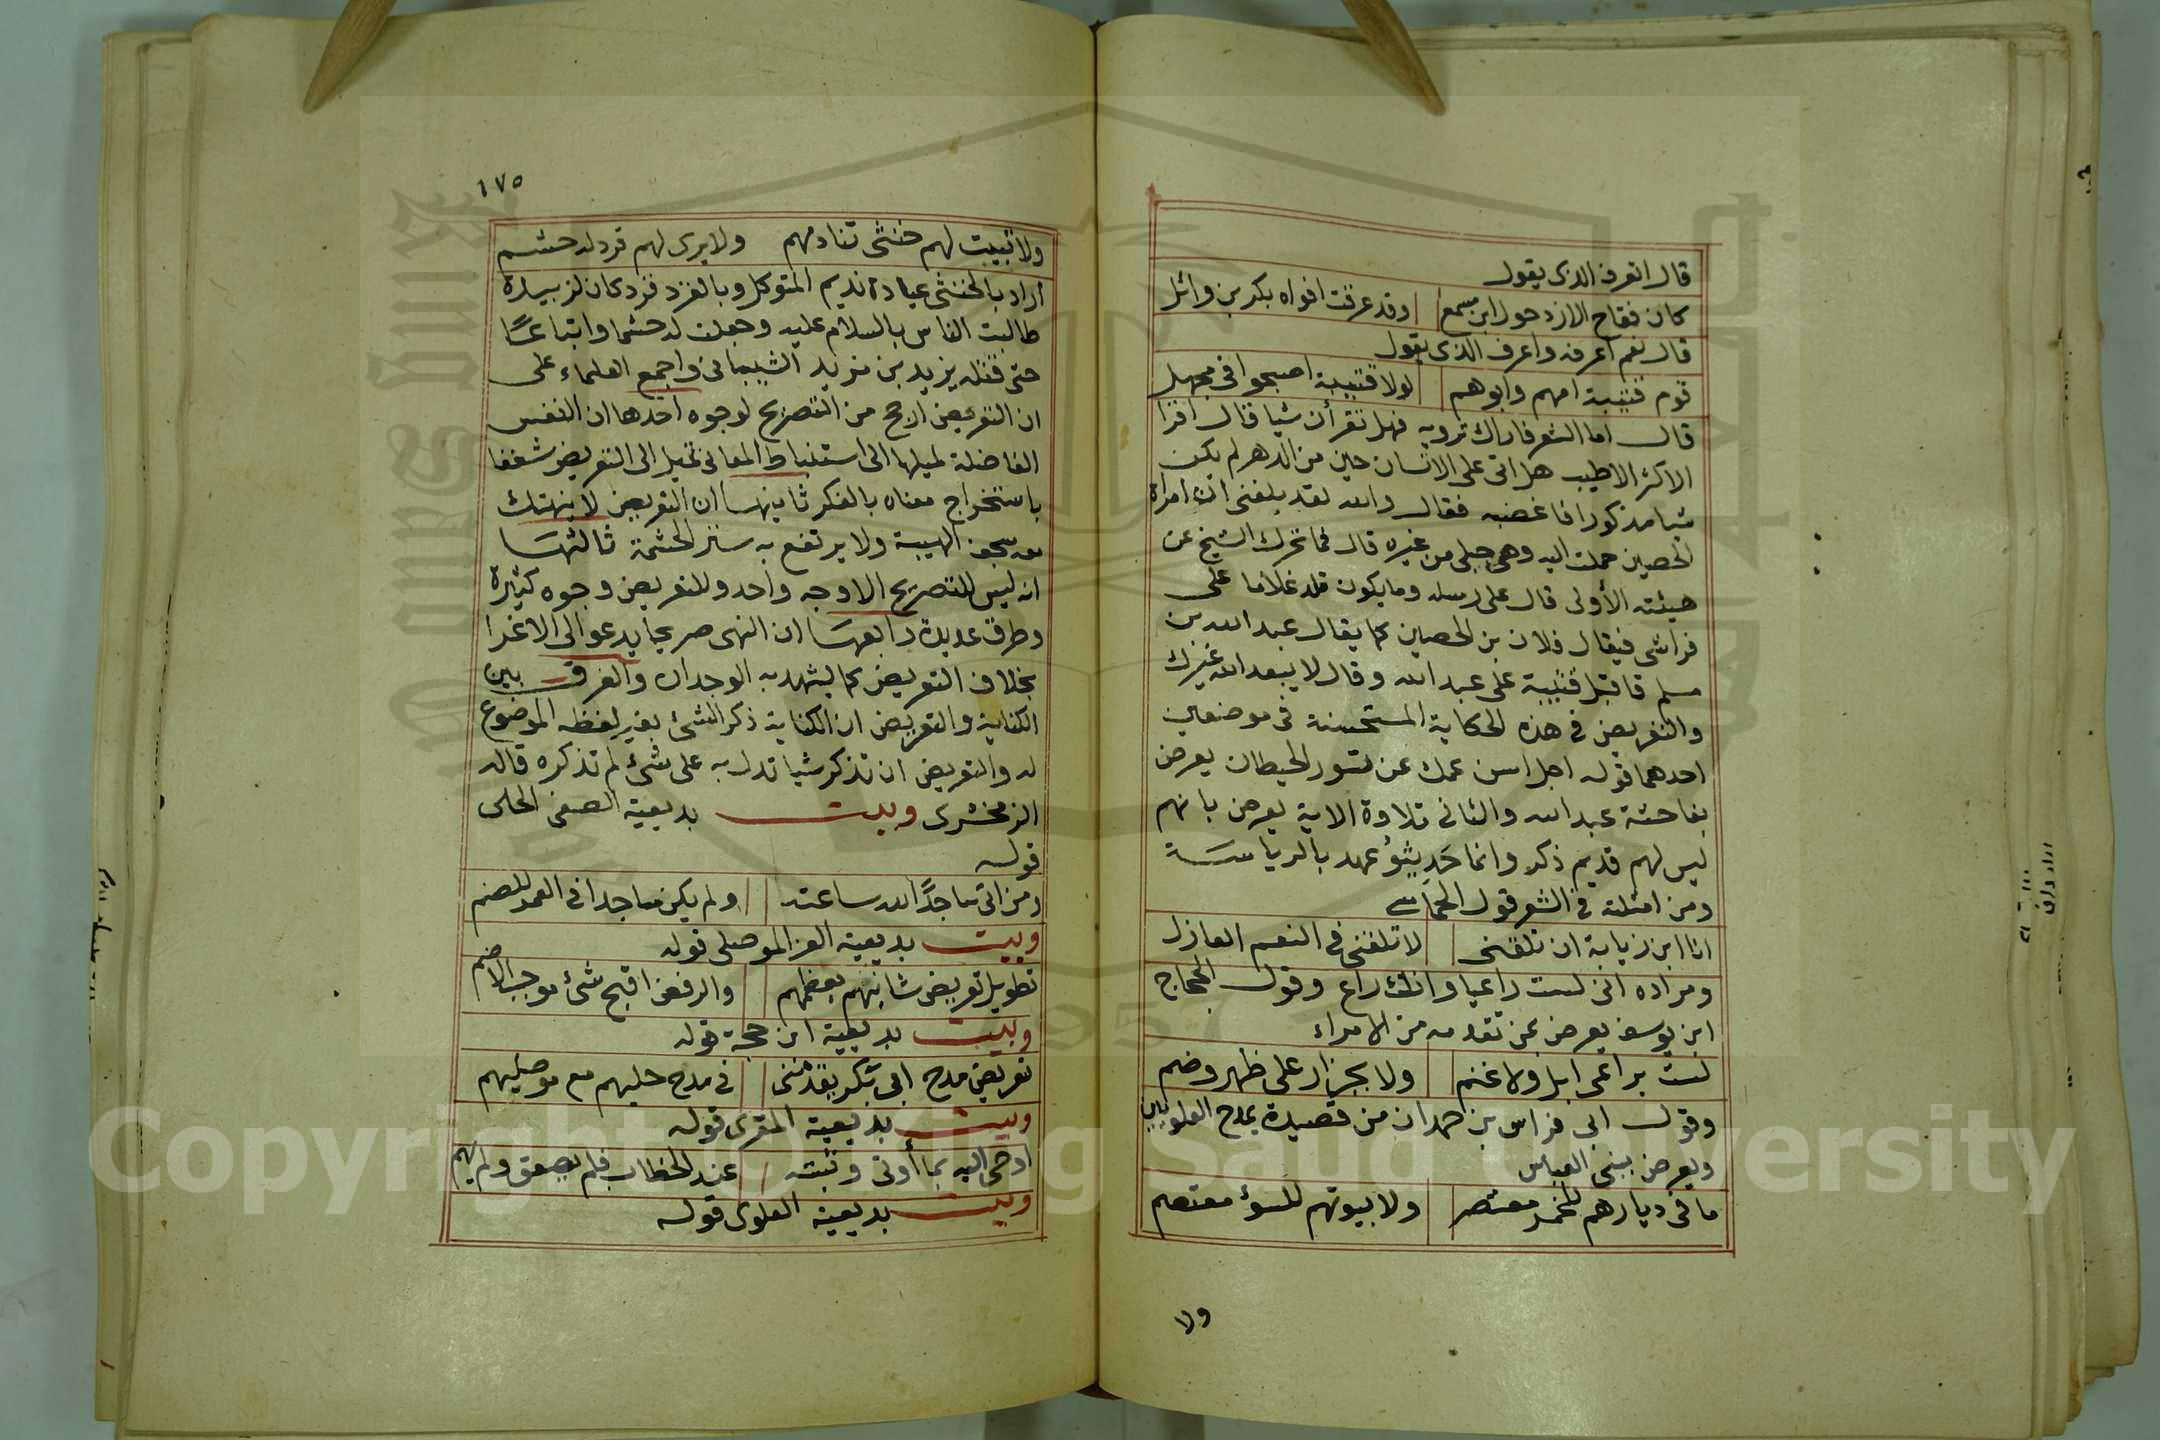 قال اتعرف الذى يقول
كان فقاح الازد حول ابن مسمع وقد عرقت افواه بكر بن وائل
قال نعم اعرفه واعرف الذى يقول
قوم قتيبة امهم وابوهم لولا قتيبة اصبحوا فى مجهل
قال اما الشعر فاراك ترويه فهل تقرأن شيا قال اقرا
الاكثر الاطيب هل اتى على الانسان حين من الدهر لم يكن
شيا مذكورا فاغضبه فقال والله لقد بلغنى ان امراة
الحصين حملت اليه وهى حبلى من غيره قال فما تحرك الشيخ عن
هيئته الأولى قال على رسله وما يكون تلد غلاما على
فراشى فيقال فلان بن الحصين كما يقال عبد الله بن
مسلم فاقبل قتيبة على عبد الله وقال لا يبعد الله غيرك
والتعريض فى هذه الحكاية المستحسنة فى موضعين
احدهما قوله اجل اسن عمك عن تسور الحيطان يعرض
بفاحشة عبد الله والثانى تلاوة الاية يعرض بانهم
ليس لهم قديم ذكر وانما حَدِيثوُ عهد بالرياسة
ومن امثلته فى الشعر قول الحماسى
انا ابن زيابة ان تلقنى لا تلقنى فى النعم العازل
ومراده انى لست راعيا وانك راع وقول الحجاج
ابن يوسف يعرض بمن تقدمه من الامراء
لست براعى ابل ولا غنم ولا بجزار على ظهر وضم
وقول ابى فراس بن حمدان من قصيدة يمدح العلويين
ويعرض ببنى العباس
ما فى ديارهم للخمر معتصر ولا بيوتهم للسؤ معتصم
ولا
١٧٥
ولا تبيت لهم خنثى تنادمهم ولا يرى لهم قرد له حشم
اراد بالخنثى عيادة نديم المتوكل وبالقرد قرد كان لزبيدة
طالبت الناس بالسلام عليه وجعلت له حشما واتباعًا
حتى قتله يزيد بن مزيد الشيبانى واجمع العلماء على
ان التعريض ارجح من التصريح لوجوه احدها ان النفس
الفاضلة لميلها الى استنباط المعانى تميل الى التعريض شغفا
باستخراج معناه بالفكر ثانيها ان التعريض لا ينهتك
معه سجف الهيبة ولا يرتفع به ستر الحشمة ثالثها
انه ليس للتصريح الا وجه واحد وللتعريض وجوه كثيرة
وطرق عديدة رابعها ان النهى صريحا يدعو الى الاغرا
بخلاف التعريض كما يشهد به الوجدان والفرق بين
الكناية والتعريض ان الكناية ذكر الشئ بغير لفظه الموضوع
له والتعريض ان تذكر شيا تدل به على شئ لم تذكره قاله
الزمخشرى وبيت بديعية الصفى الحلى
قوله
ومن اتى ساجدًا لله ساعته ولم يكن ساجدا فى العمر للصنم
وبيت بديعية العز الموصلى قوله
تطويل تعريض شانيهم يعظمهم والرفض اقبح شئ موجب الاضم
وبيت بديعية ابن حجة قوله
تعريض مدح ابى بكر يقدمنى فى مدح حليهم مع موصليهم
وبيت بديعية المقرى قوله
اوحى اليه بما أوتى وثبته عند الخطاب فلم يصعق ولم يهم
وبيت بديعية العلوى قوله
Copyright © King Saud University